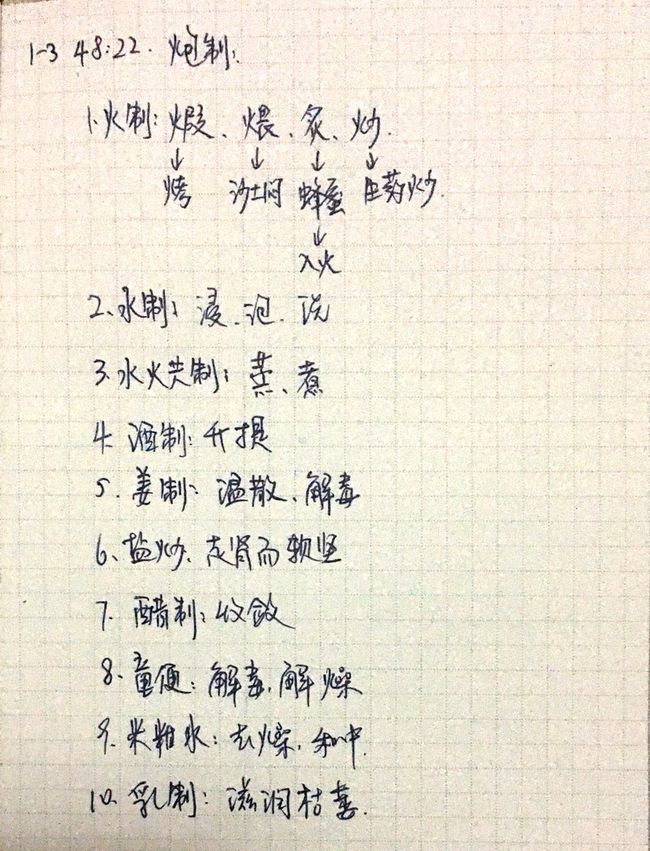 1-3 48:22. 炮制:
1.火制:煅、煨、炙、炒.
↓ ↓ ↓ ↓
烤 沙土闷 蜂蜜 药炒.
↓
入火
2.水制:浸、泡、洗
3.水火共制:蒸、煮
4.酒制:升提
5.姜制:温散、解毒
6、盐炒、走肾而软坚
7.醋制:收敛
8.童便:解毒,解燥
9.米泔水:去燥,和中.
10.乳制:滋润枯.